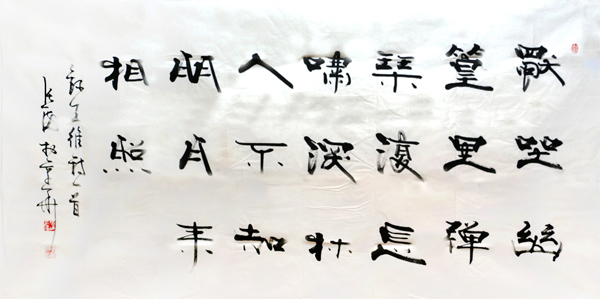 獨坐幽
篁里彈
琴復長
嘯深林
人不知
明月來
相照
録王維詩一首